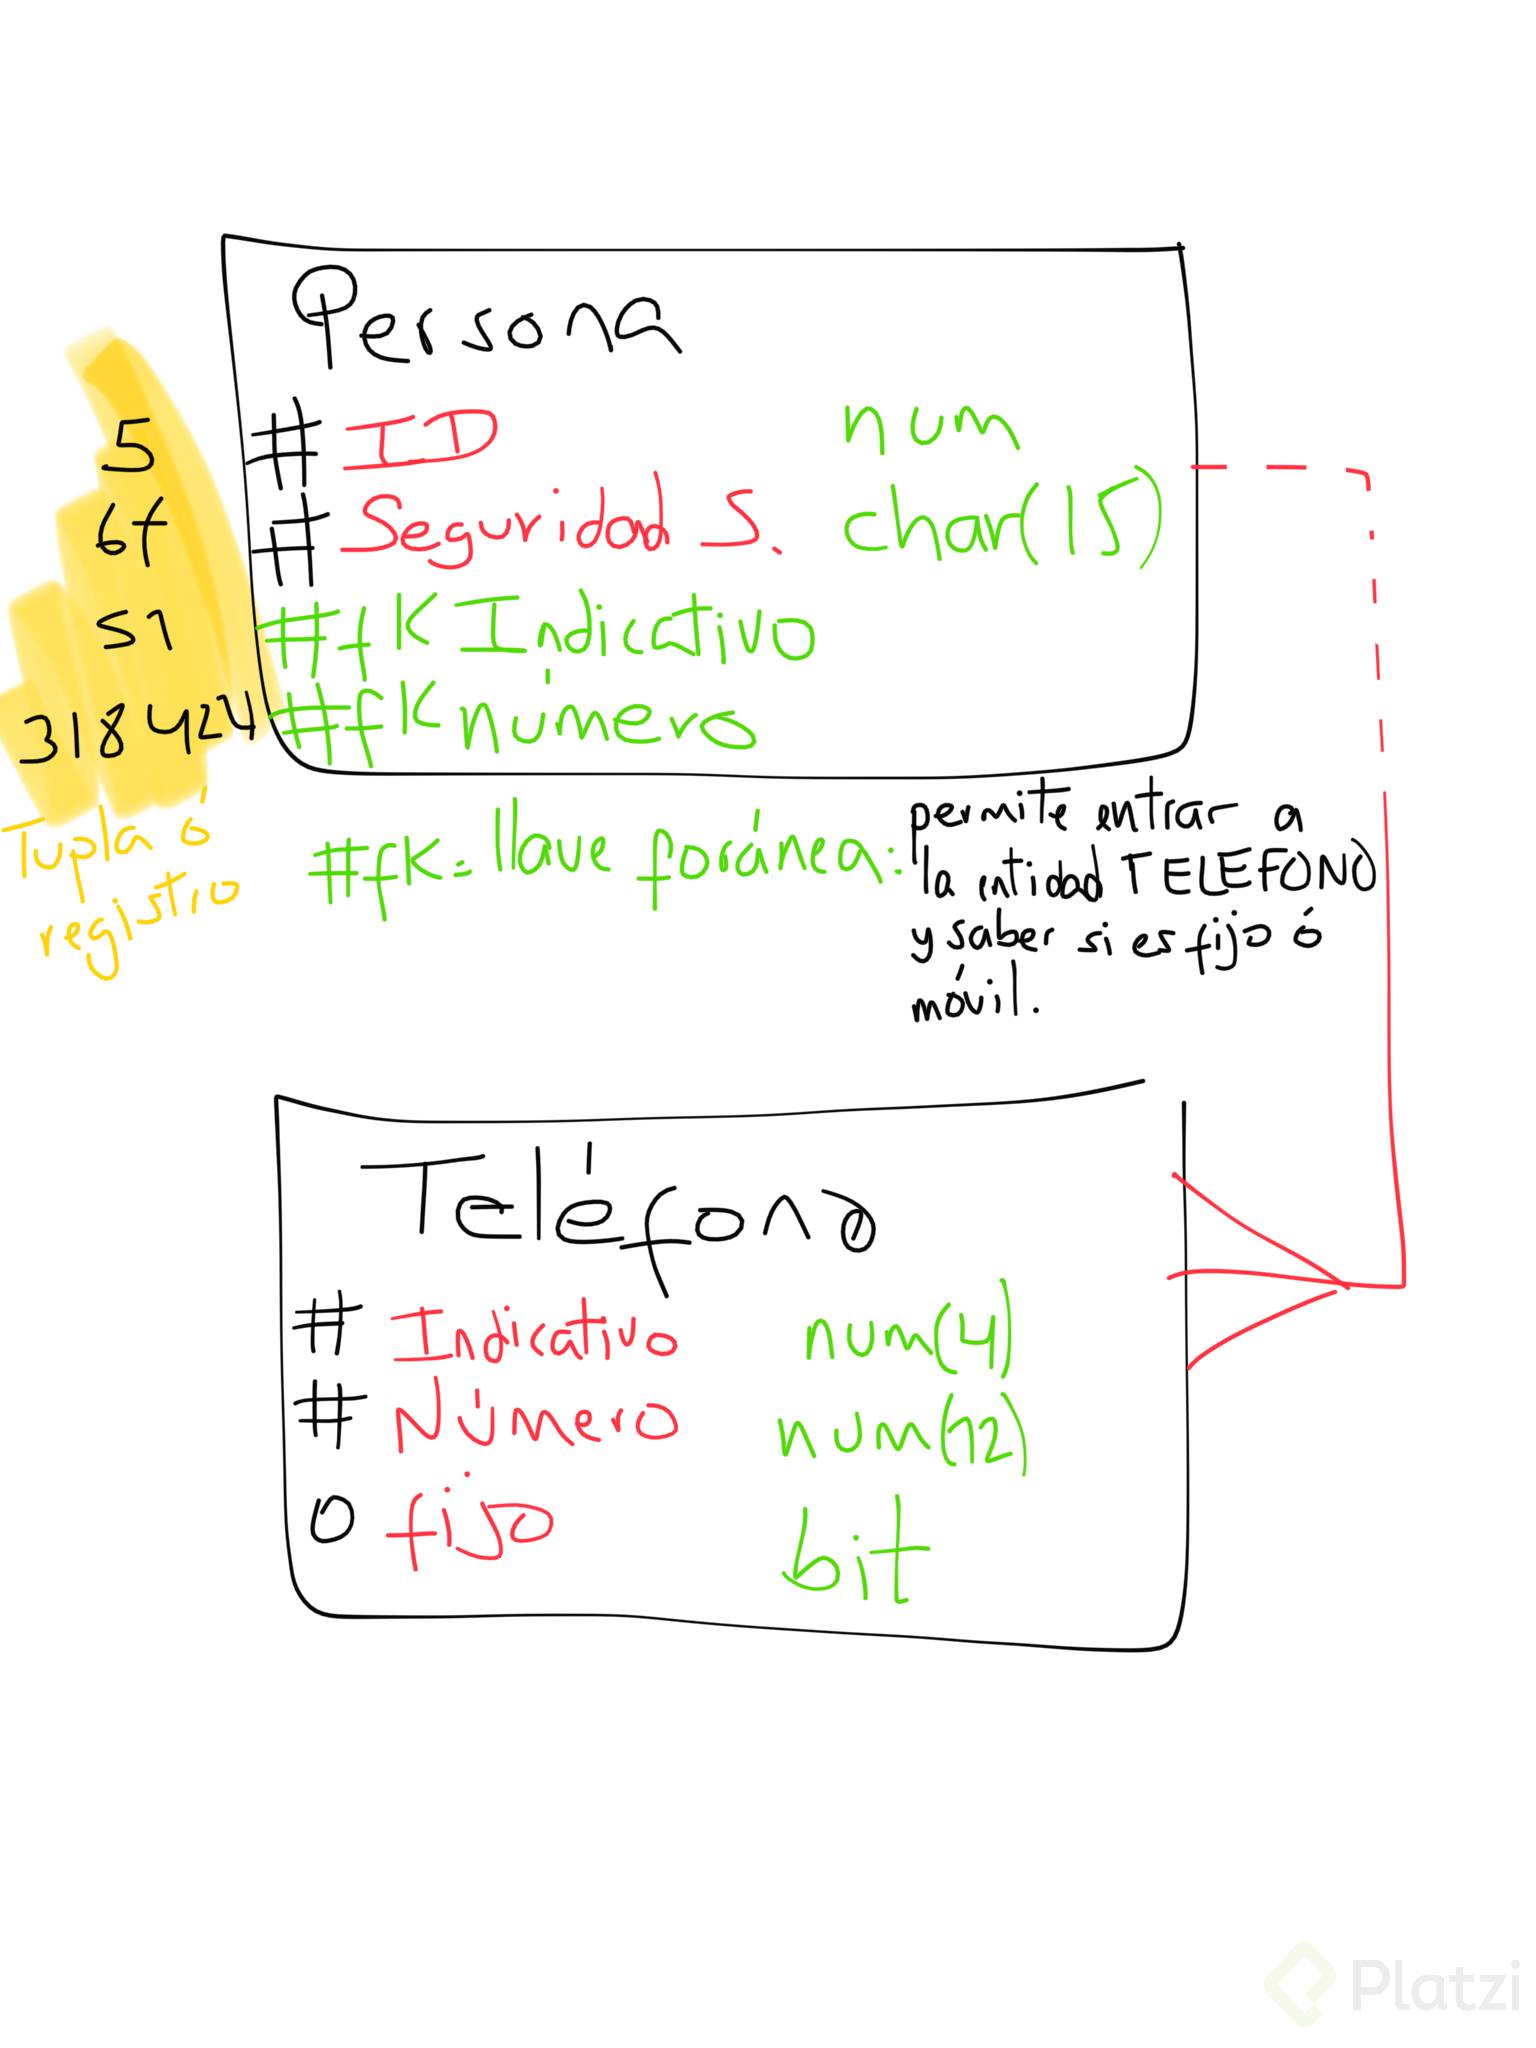 Persona
# ID num
# Seguridad S. char(15)
#fK Indicativo
#fK número
5
6f
51
318424
Tupla ó
registro
#fK = llave foránea:
permite entrar a
la entidad TELEFONO
y saber si es fijo ó
móvil.
Teléfono
# Indicativo num(4)
# Número num(12)
O fijo bit
Platzi